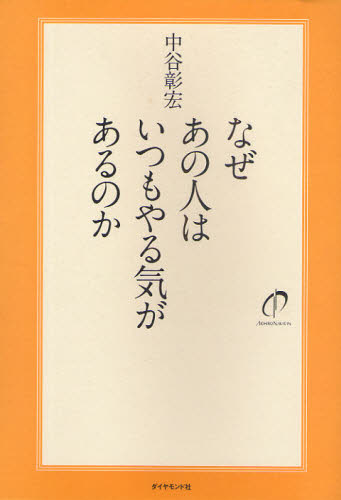 中谷彰宏
なぜ
あの人は
いつもやる気が
あるのか
ダイヤモンド社